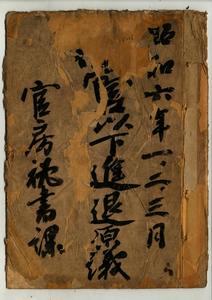 昭和六年一、二、三月
雇以下進退原議
官房秘書課